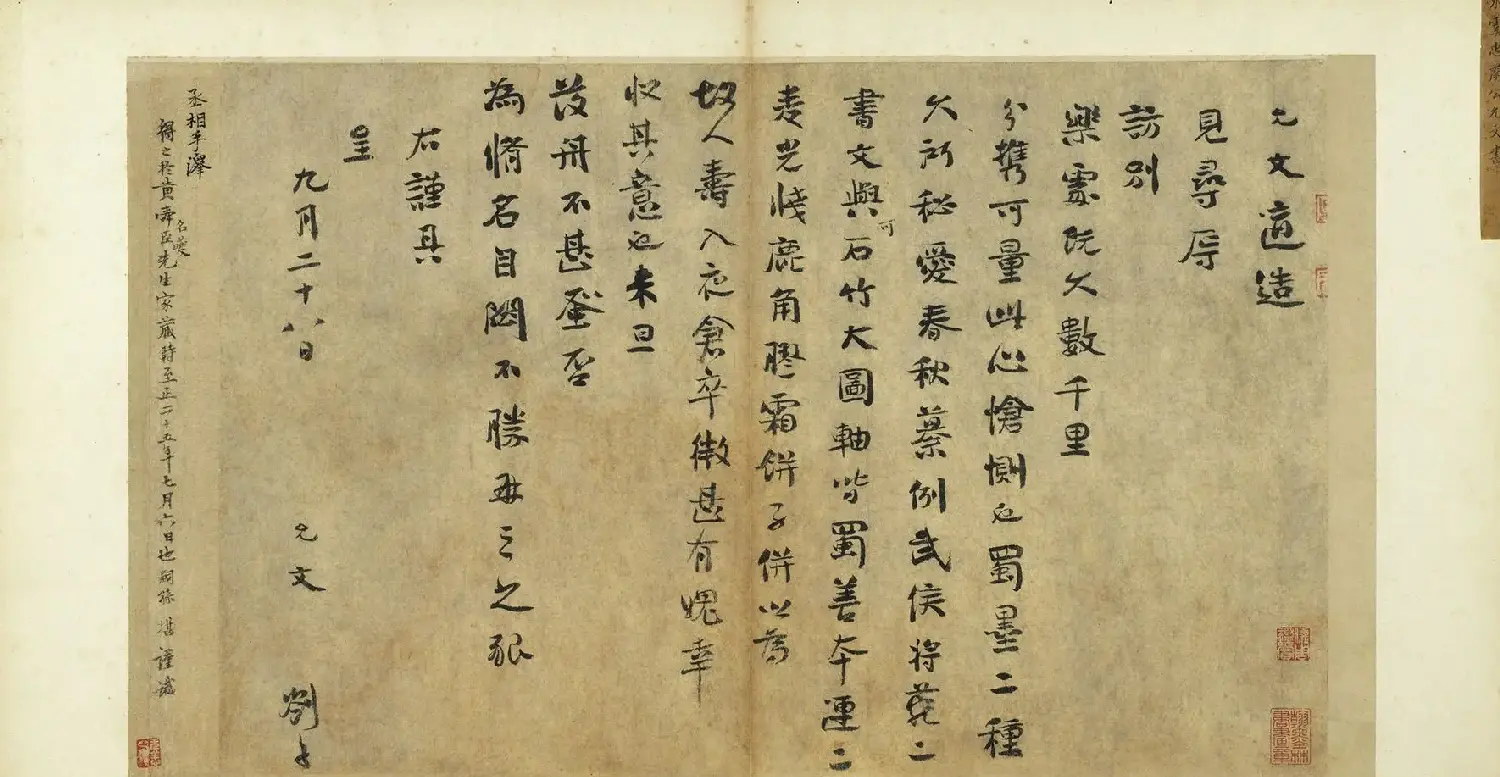 虞忠肅公允文書
允文適造
見尋辱
訪別
樂處既久數千里
分攜可量此心愴惻也蜀墨二種
久所秘愛春秋纂例武侯將苑二
書文與可石竹大圖軸皆蜀善本連二
麦光牋鹿角膠霜餅子併以為
故人壽入夜倉卒微甚有愧幸
收其意也未旦
發舟不甚蚤否
為脩名目悶不勝再三之
右謹具
呈
九月二十八日 允文 劄子
丞相手澤
得之於黃舜臣名夔先生家藏時至正二十五年七月六日也嗣孫堪謹識